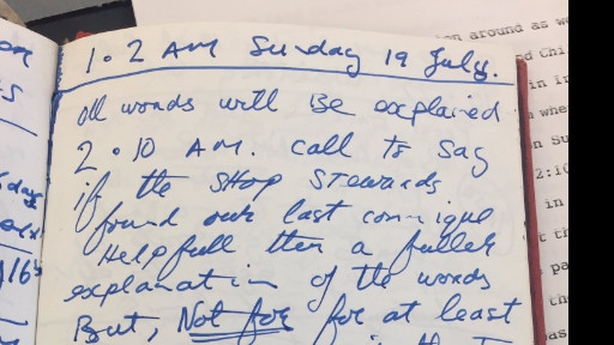 1.2 AM Sunday 19 July.
all words will Be explained
2.10 AM. call to say
if the SHop STewards
found our last comnique
Helpfull then a fuller
explanation of the words
But, Not for for at least
around as we
in
whe
in